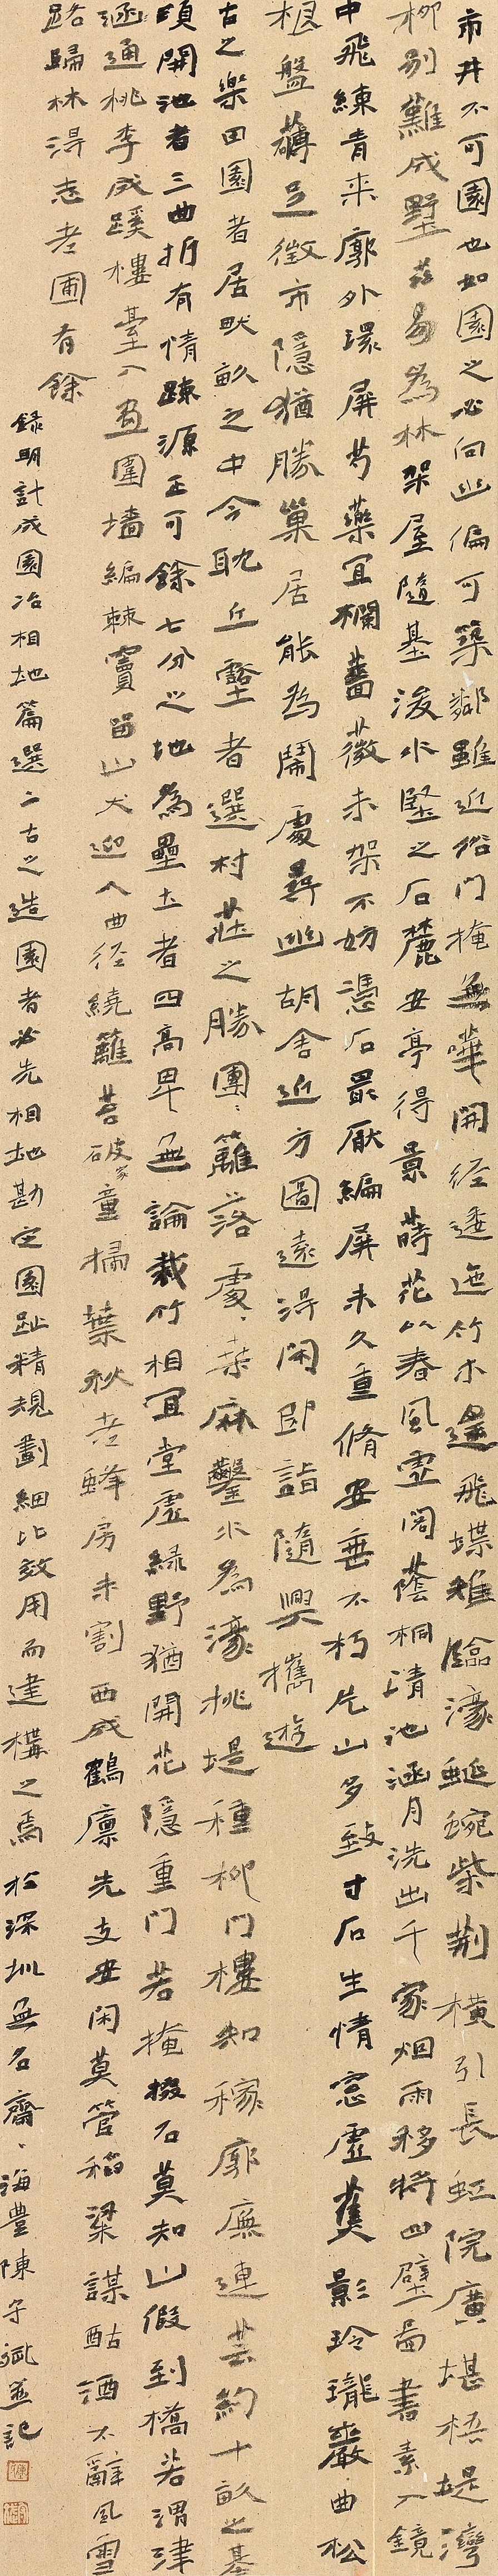 市井不可園也如園之必向幽偏可築鄰雖近俗門掩無嘩開徑逶迤竹木遥飛堞雉臨濠蜒蜿柴荆横引長虹院廣堪梧堤灣
柳別難成墅茲易為林架屋隨基浚水堅之石麓安亭得景蒔花以春風虛閣蔭桐清池涵月洗出千家烟雨移將四壁圖書素入鏡
中飛練青来廓外環屏芍藥宜欄薔薇未架不妨憑石最厭編屏未久重脩安垂不朽片山多致寸石生情窓虛蕉影玲瓏巖曲松
根盤礴足徵市隱猶勝巢居能為鬧處尋幽胡舍近方圖遠得閑即詣隨興攜遊
古之樂田園者居畎畝之中今耽丘壑者選村莊之勝團團籬落處處桑麻鑿水為濠挑堤種柳門樓知稼廓廡連芸約十畝之基
須開池者三曲折有情疎源正可餘七分之地為壘土者四高卑無論栽竹相宜堂虛緑野猶開花隱重門若掩掇石莫知山假到橋若謂津
通桃李成蹊樓臺入畫圍墻編棘竇留山犬迎人曲径繞籬苔破家童掃葉秋老蜂房未割西成鶴廪先支安閑莫管稻粱謀酤酒不辭風雪
路歸林得志老圃有餘
錄明計成園冶相地篇選二古之造園者必先相地勘定園趾精規劃細比效用而建構之焉於深圳無名齋海豐陳子並記